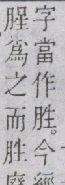 字當作胜。今經
腥為之而胜廢